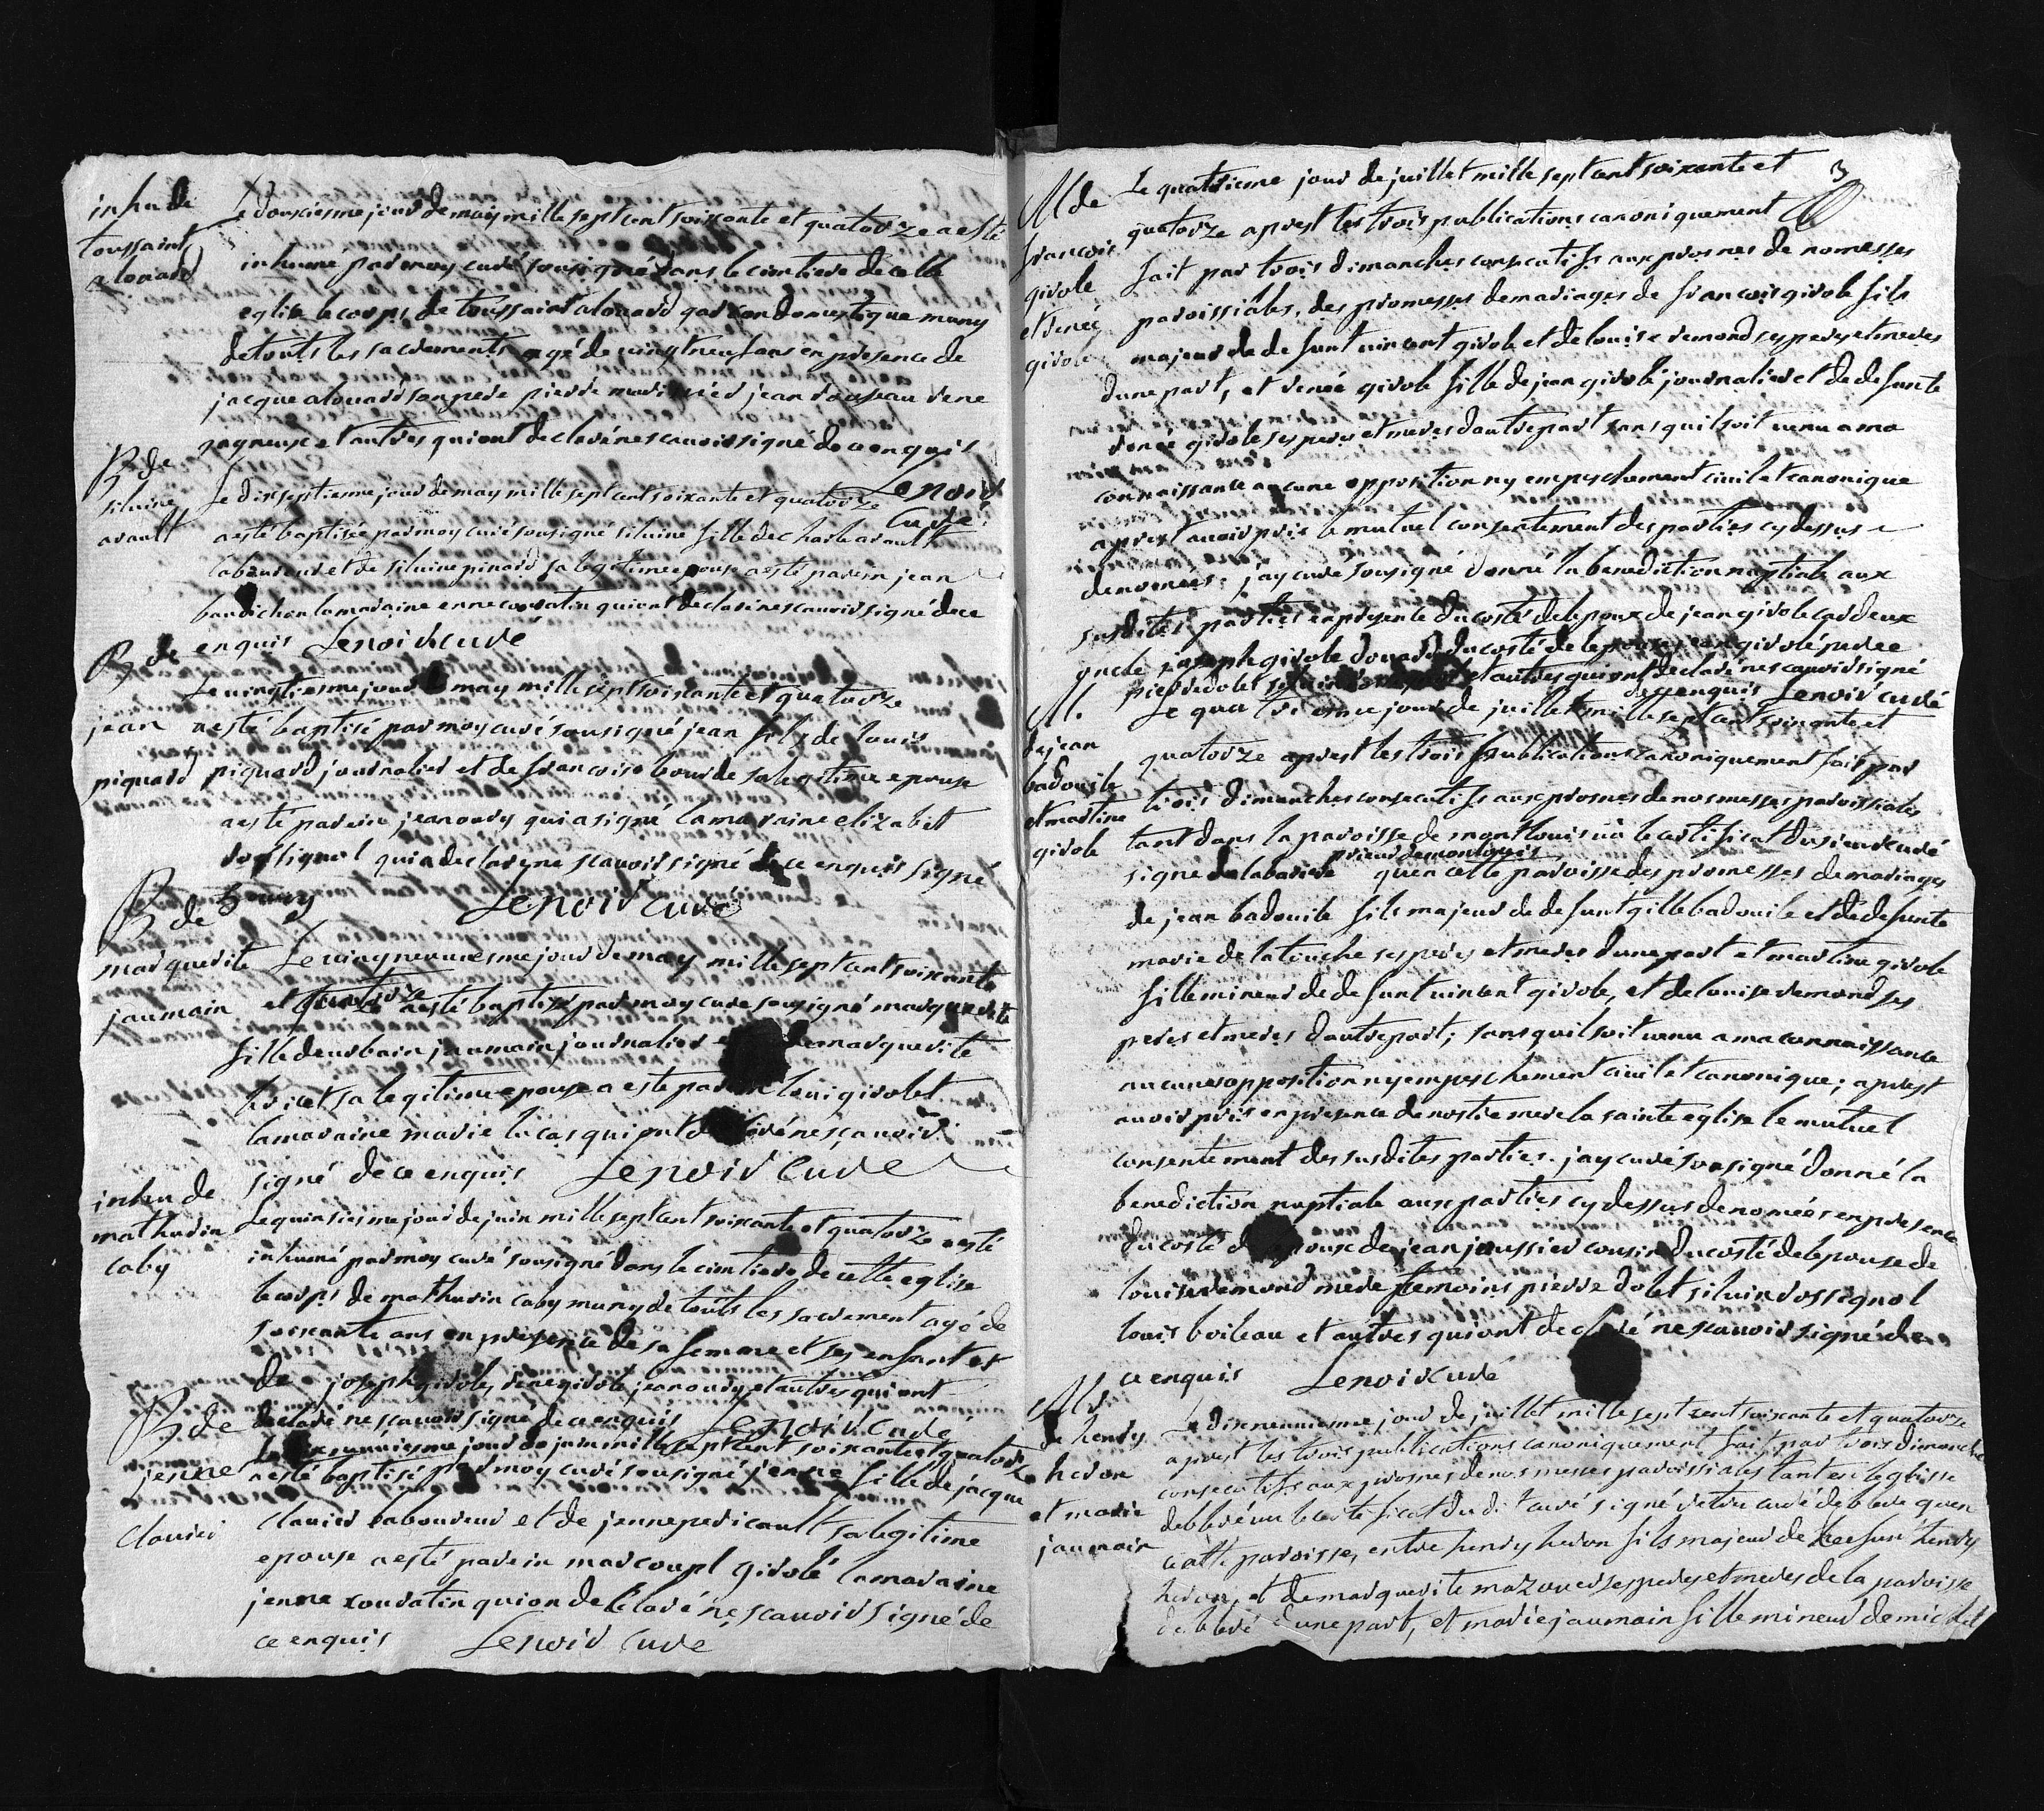 inhu de
toussaint
alouard
Le douziesme jour de may mille sept cent soixante et quatorze a esté
inhumé par moy curé sousigné dans le cimtiere de cette
eglise le corps de toussaint alouard garson domestique muny
de touts les sacrements agé de vingt neuf ans en presence de
jacque alouard son pere pierre jean rousseau rene
gagneux et autres qui ont declaré ne scauoir signé de ce enquis
Lenoir
curé
B de
siluine
arault
Le dixseptienne jour de may mille sept cent soixante et quatorze
a esté baptisée par moy curé sousigné siluine fille de charle arault
laboureur et de siluine pinard sa legitime epouse a esté parein jean
baudichon la maraine enne couratin qui ont declari ne scauoir signé de ce
enquis Lenoir curé
B de
jean
piquard
Le vingtiesme jour de may mille sept soixante et quatorze
a esté baptisé par moy curé sousigné jean fils de louis
piquard journalier et de francoise bourde sa legitime epouse
a este parein jean oury qui a signé la maraine elizabet
rossignol qui a declare ne scauoir signé de ce enquis signé
oury Lenoir curé
B de
marguerite
jaumain
Le vingneuuiesme jour de may mille sept cent soixante
et quatorze a esté baptisé par moy cure sousigné marguerite
fille de urbain jaumain journalier et de marguerite
tricet sa legitime epouse a este parein loui girolet
la maraine marie lucas qui ont declaré ne scauoir
signé de ce enquis Lenoir curé
inhu de
mathurin
caby
Le quinsiesme jour de juin mille sept cent soixante et quatorze a esté
inhumé par moy curé sousigné dans le cimtiere de cette eglise
le corps de mathurin caby muny de touts les sacrement agé de
soixante ans en presence de sa femme et ses enfant et
de joseph girole, rene girole jean oury et autres qui ont
declaré ne scauoir signé de ce enquis Lenoir curé
B de
jenne
clauier
Le dixneuuiesme jour de juin mille sept cent soixante et quatorze
a esté baptisé par moy curé sousigné jenne fille de jacque
clauier laboureur et de jenne pericault sa legitime
epouse a esté parein marcoupl girolé la maraine
jenne couratin qui on declaré ne scauoir signé de
ce enquis Lenoir cure
3
M de
francois
girole
et reneé
girole
Le quatrieme jour de juillet mille sept cent soixante et
quatorze aprest les trois publications canoniquement
fait par trois dimanches consecatifs aux prosnes de no messes
paroissiales, des promesses de mariages de francois girole fils
majeur de defunt vincent girole et de louise remond ses peres et meres
dune part, et reneé girole fille de jean girole journalier et de defunte
reneé girole ses peres et meres dautre part sans quil soit venu a ma
connaissance aucune opposition ny empeschement ciuil et canonique
aprest auoir pris le mutuel consentement des parties cy dessus
denomeés: jay curé sousigné donné la benediction nuptiale aux
susdites parties en presence du costé de lepoux de jean girole cardeux
oncle joseph girole du costé de lepouse jean girolé pere
pierre dolet et autres qui ont declaré ne scauoir signé
de ce enquis Lenoir curé
M.
de jean
badouile
et martine
girole
Le quatriemne jour de juillet mille sept cent soixante et
quatorze aprest les trois publications canoniquement fait par
trois dimanches consecatifs aux prosnes de nos messes paroissiales
tant dans la paroisse de montlouis uû le certificat du sieur curé
prieur de montlouis
signé delabariere quen cette paroisse des promesses de mariages
de jean badouile fils majeur de defunt gille badouile et de defunte
marie de latouche ses peres et meres dune part et martine girole
fille mineur de defunt vincent girole, et de louise remond ses
peres et meres dautre part; sans quil soit venu a ma connaissance
aucunes opposition ny empeschement ciuil et canonique; aprest
auoir pris en presence de nostre mere la sainte eglise le mutuel
consentement des susdites parties. jay curé sousigné donné la
benediction nuptiale aux parties cy dessus denomeés en presence
du costé de lepoux de jean joussier cousin du costé de lepouse de
louise remond mere temoins pierre dolet siluin rossignol
louis boileau et autres qui ont declaré ne scauoir signé de
ce enquis Lenoir curé
M
de henry
heron
et marie
jaumain
Le dixneuuiemne jour de juillet mille sept cent soixante et quatorze
aprest les trois publications canoniquement fait par trois dimanche
consecatifs aux prosnes de nos messes paroissiales tant en leglisse
de bleré uu le certificat du dit curé signé curé de blere quen
cette paroisse, entre henry heron fils majeur de defunt henry
heron, et de marguerite mazouer ses peres et meres de la paroisse
de bleré dune part, et marie jaumain fille mineur de michel